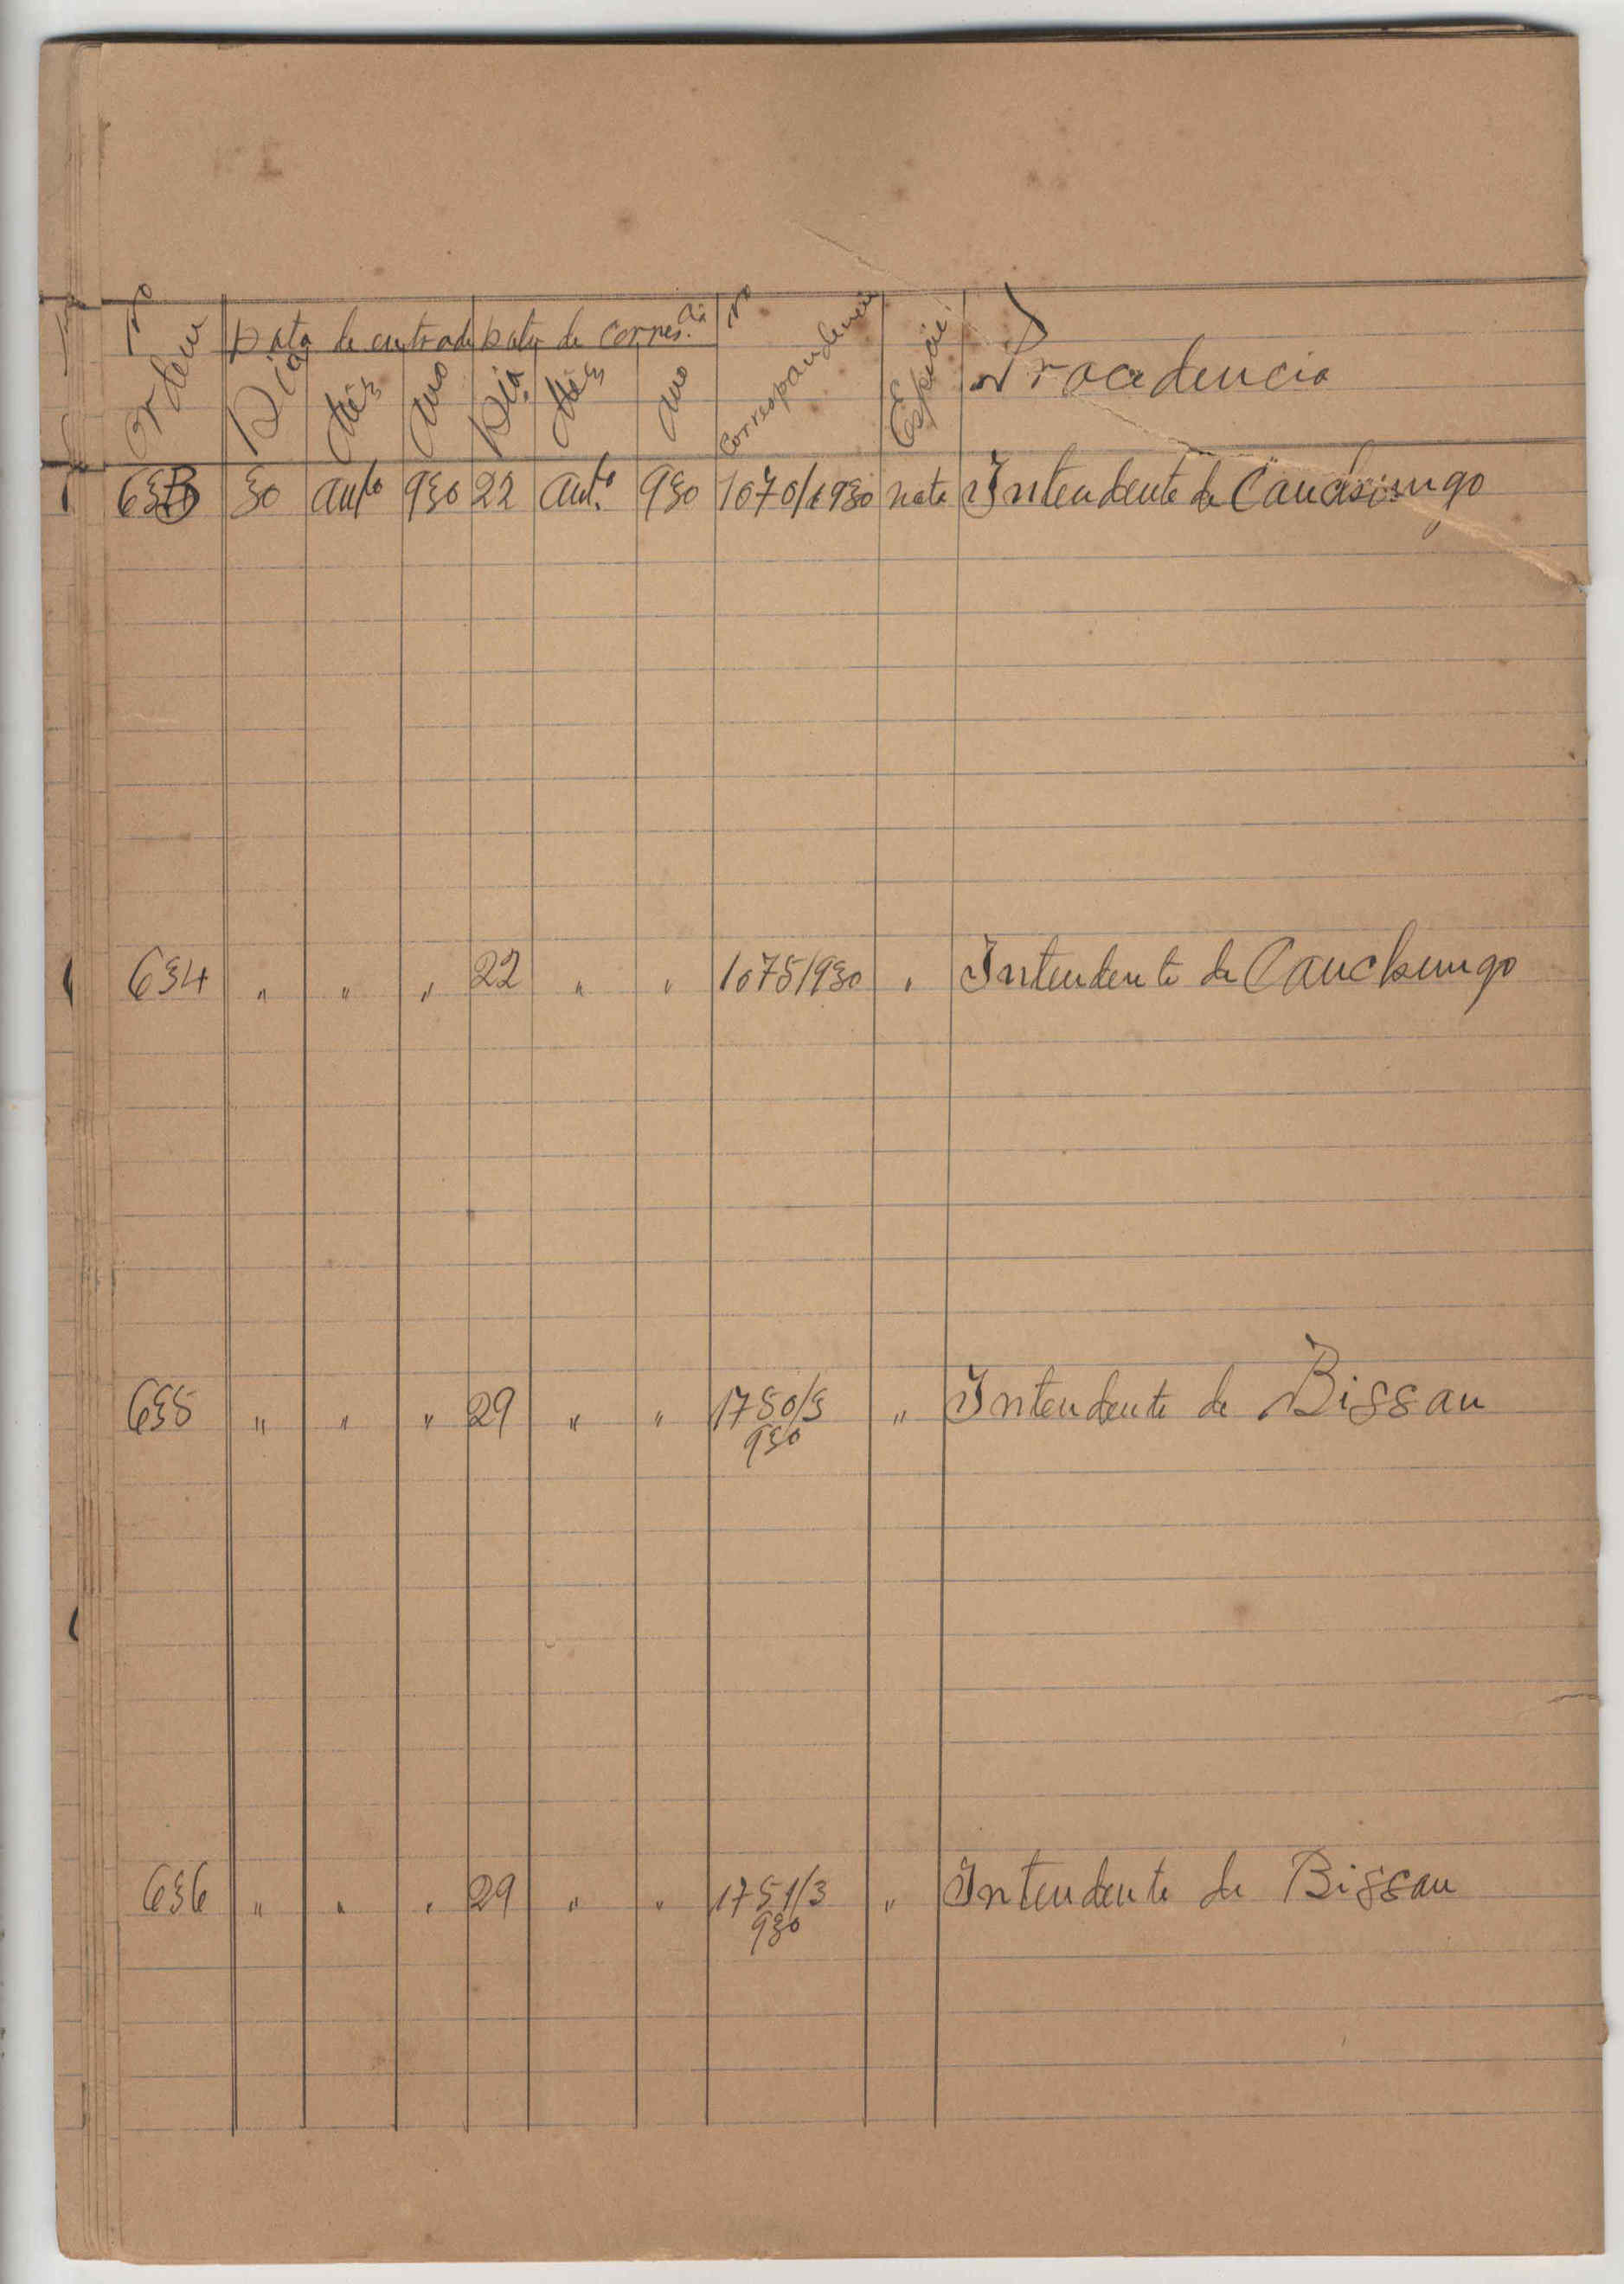 Nº Ordem Data de entrada Data de corres.cia Nº Correspondencia Especie Procedencia
Dia Mês Ano Dia Mês Ano
633 30 Out.o 930 22 Out.o 930 1070/930 nota Intendente de Canchungo
634 " " " 22 " " 1075/930 " Intendente de Canchungo
635 " " " 29 " " 1750/3 " Intendente de Bissau
930
636 " " " 29 " " 1751/3 " Intendente de Bissau
930